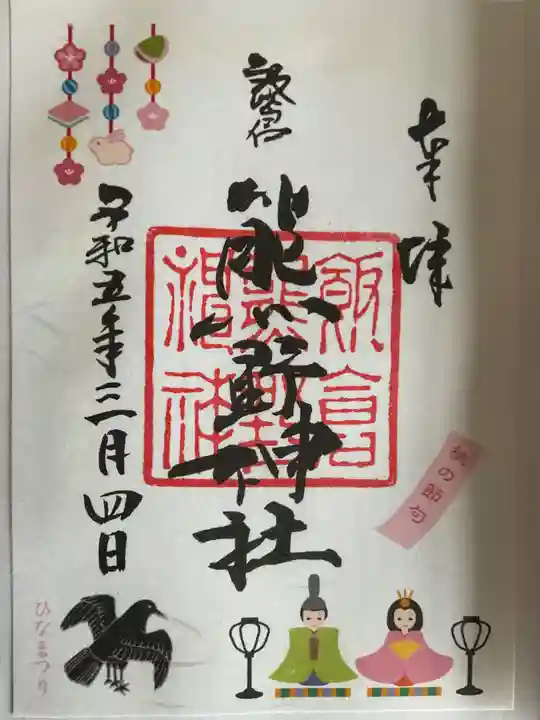 奉拝
飯倉
熊野神社
飯倉
熊野
神社
令和五年三月四日
桃の節句
ひなまつり